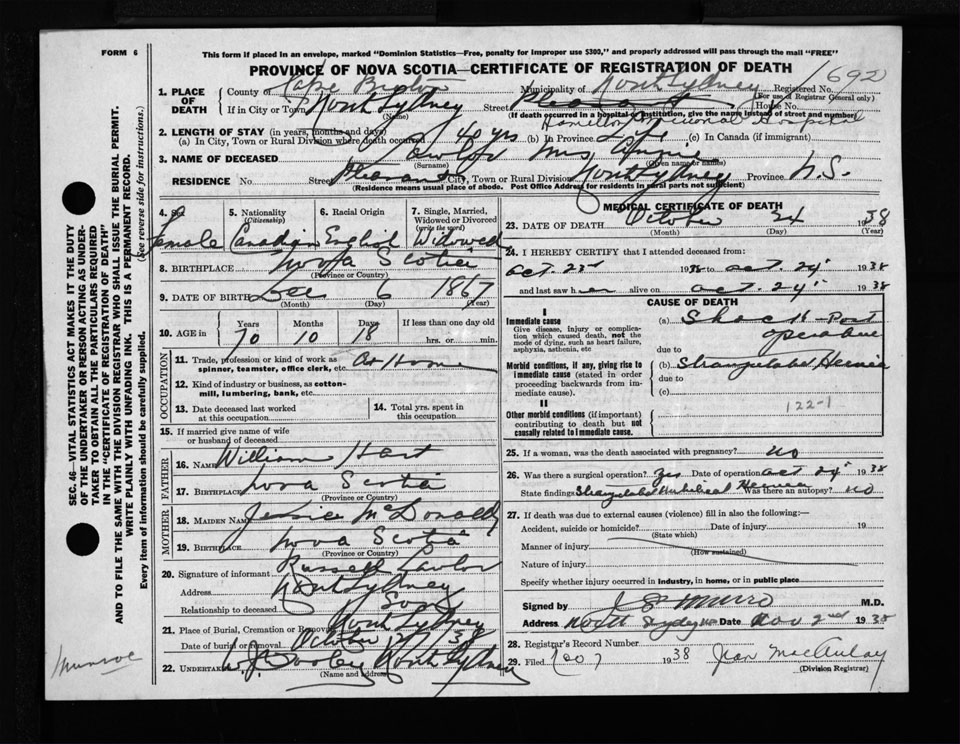 FORM 6
This form if placed in an envelope, marked "Dominion Statistics—Free, penalty for improper use $300," and properly addressed will pass through the mail "FREE"
PROVINCE OF NOVA SCOTIA—CERTIFICATE OF REGISTRATION OF DEATH
1692
1. PLACE OF DEATH
County of Cape Breton Municipality of North Sydney Registered No.
(For use of Registrar General only)
If in City or Town North Sydney Street Pleasant House No.
(Name) (If death occurred in a hospital or institution, give the name instead of street and number)
Hamilton Memorial Hospital
2. LENGTH OF STAY (in years, months and days)
(a) In City, Town or Rural Division where death occurred 40 yrs (b) In Province Life (c) In Canada (if immigrant)
3. NAME OF DECEASED Lawlor Mrs. Annie
(Surname) (Given name or names)
RESIDENCE No. Street Pleasant City, Town or Rural Division North Sydney Province N.S.
(Residence means usual place of abode. Post Office Address for residents in rural parts not sufficient)
4. Sex Female
5. Nationality (Citizenship) Canadian
6. Racial Origin English
7. Single, Married, Widowed or Divorced (write the word) Widowed
8. BIRTHPLACE Nova Scotia
(Province or Country)
9. DATE OF BIRTH Dec 6 1867
(Month) (Day) (Year)
10. AGE in Years 70 Months 10 Days 18 If less than one day old hrs. or min.
OCCUPATION
11. Trade, profession or kind of work as spinner, teamster, office clerk, etc. At Home
12. Kind of industry or business, as cotton-mill, lumbering, bank, etc.
13. Date deceased last worked at this occupation
14. Total yrs. spent in this occupation
15. If married give name of wife or husband of deceased
FATHER
16. NAME William Hart
17. BIRTHPLACE Nova Scotia
(Province or Country)
MOTHER
18. MAIDEN NAME McDonald
19. BIRTHPLACE Nova Scotia
(Province or Country)
20. Signature of informant Russell Lawlor
Address North Sydney
Relationship to deceased Son
21. Place of Burial, Cremation or Removal North Sydney
Date of burial or removal October 38
22. UNDERTAKER Dooley North Sydney
(Name and address)
MEDICAL CERTIFICATE OF DEATH
23. DATE OF DEATH October 24 1938
(Month) (Day) (Year)
24. I HEREBY CERTIFY that I attended deceased from:
Oct. 23rd 1938 to Oct. 24 1938
and last saw her alive on Oct. 24 1938
CAUSE OF DEATH
I
Immediate cause
Give disease, injury or complication which caused death, not the mode of dying, such as heart failure, asphyxia, asthenia, etc
(a) Shock - Post operative
due to
Morbid conditions, if any, giving rise to immediate cause (stated in order proceeding backwards from immediate cause).
(b) Strangulated Hernia
due to
(c)
122-1
II
Other morbid conditions (if important) contributing to death but not causally related to immediate cause.
25. If a woman, was the death associated with pregnancy? no
26. Was there a surgical operation? yes Date of operation Oct 24 1938
State findings Strangulated Umbilical Hernia Was there an autopsy? no
27. If death was due to external causes (violence) fill in also the following:—
Accident, suicide or homicide? Date of injury 19
(State which)
Manner of injury
(How sustained)
Nature of injury
Specify whether injury occurred in industry, in home, or in public place
Signed by Munro M.D.
Address North Sydney Date Nov 2nd 1938
28. Registrar's Record Number
29. Filed 1938 Jean MacAulay
(Division Registrar)
SEC. 46—VITAL STATISTICS ACT MAKES IT THE DUTY
OF THE UNDERTAKER OR PERSON ACTING AS UNDER-
TAKER TO OBTAIN ALL THE PARTICULARS REQUIRED
IN THE "CERTIFICATE OF REGISTRATION OF DEATH"
AND TO FILE THE SAME WITH THE DIVISION REGISTRAR WHO SHALL ISSUE THE BURIAL PERMIT.
WRITE PLAINLY WITH UNFADING INK. THIS IS A PERMANENT RECORD.
Every item of information should be carefully supplied. (See reverse side for instructions.)
Munroe